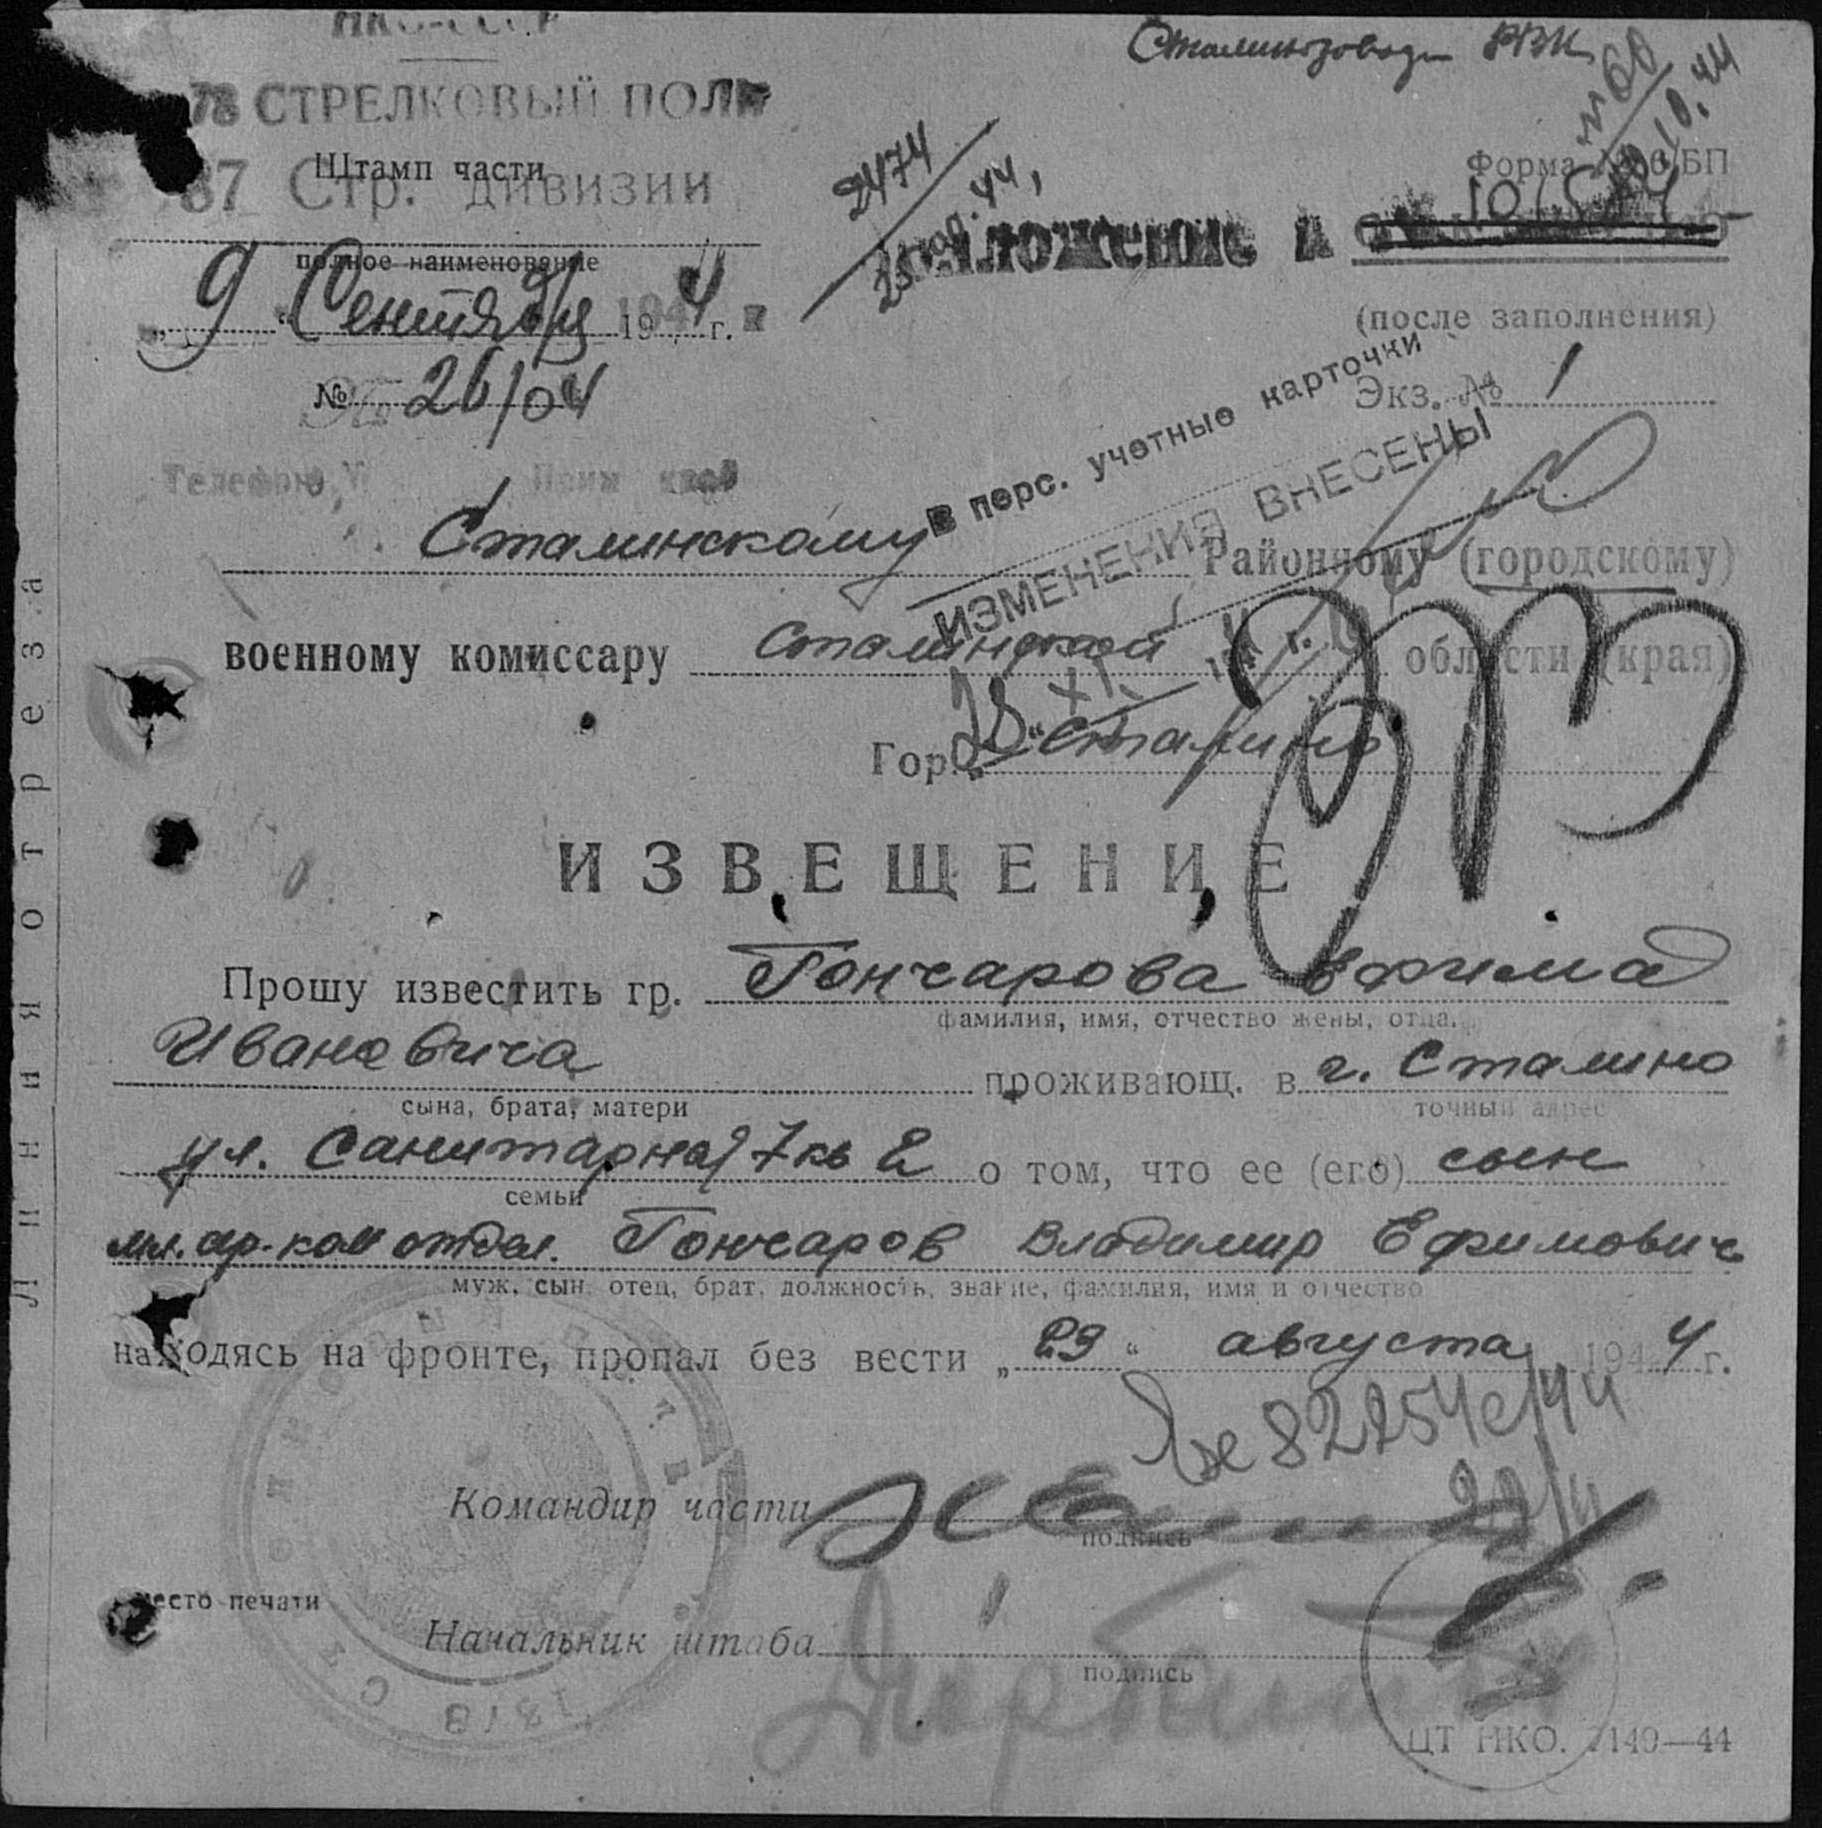 Сталинозаводск РВК
78 СТРЕЛКОВЫЙ ПОЛК
Штамп части
87 Стр. дивизии
2474
Форма БП
полное наименование
"9" Сентября 1944 г.
(после заполнения)
№ 26/04
Экз. № 1
в перс. учетные карточки
ИЗМЕНЕНИЯ ВНЕСЕНЫ
Сталинскому Районному (городскому)
военному комиссару Сталинской области (края)
Гор. Сталино
ИЗВЕЩЕНИЕ
Прошу известить гр. Гончарова Ефима
фамилия, имя, отчество жены, отца,
Ивановича проживающ. в г. Сталино
сына, брата, матери точный адрес
ул. Санитарная 7 кв 2 о том, что ее (его) сын
семьи
мл. сер. ком отдел. Гончаров Владимир Ефимович
муж, сын, отец, брат, должность, звание, фамилия, имя и отчество
находясь на фронте, пропал без вести „29“ августа 1944 г.
82254с/44
Командир части
подпись
место печати
Начальник штаба
подпись
ЦТ НКО. 1140—44
Линия отреза